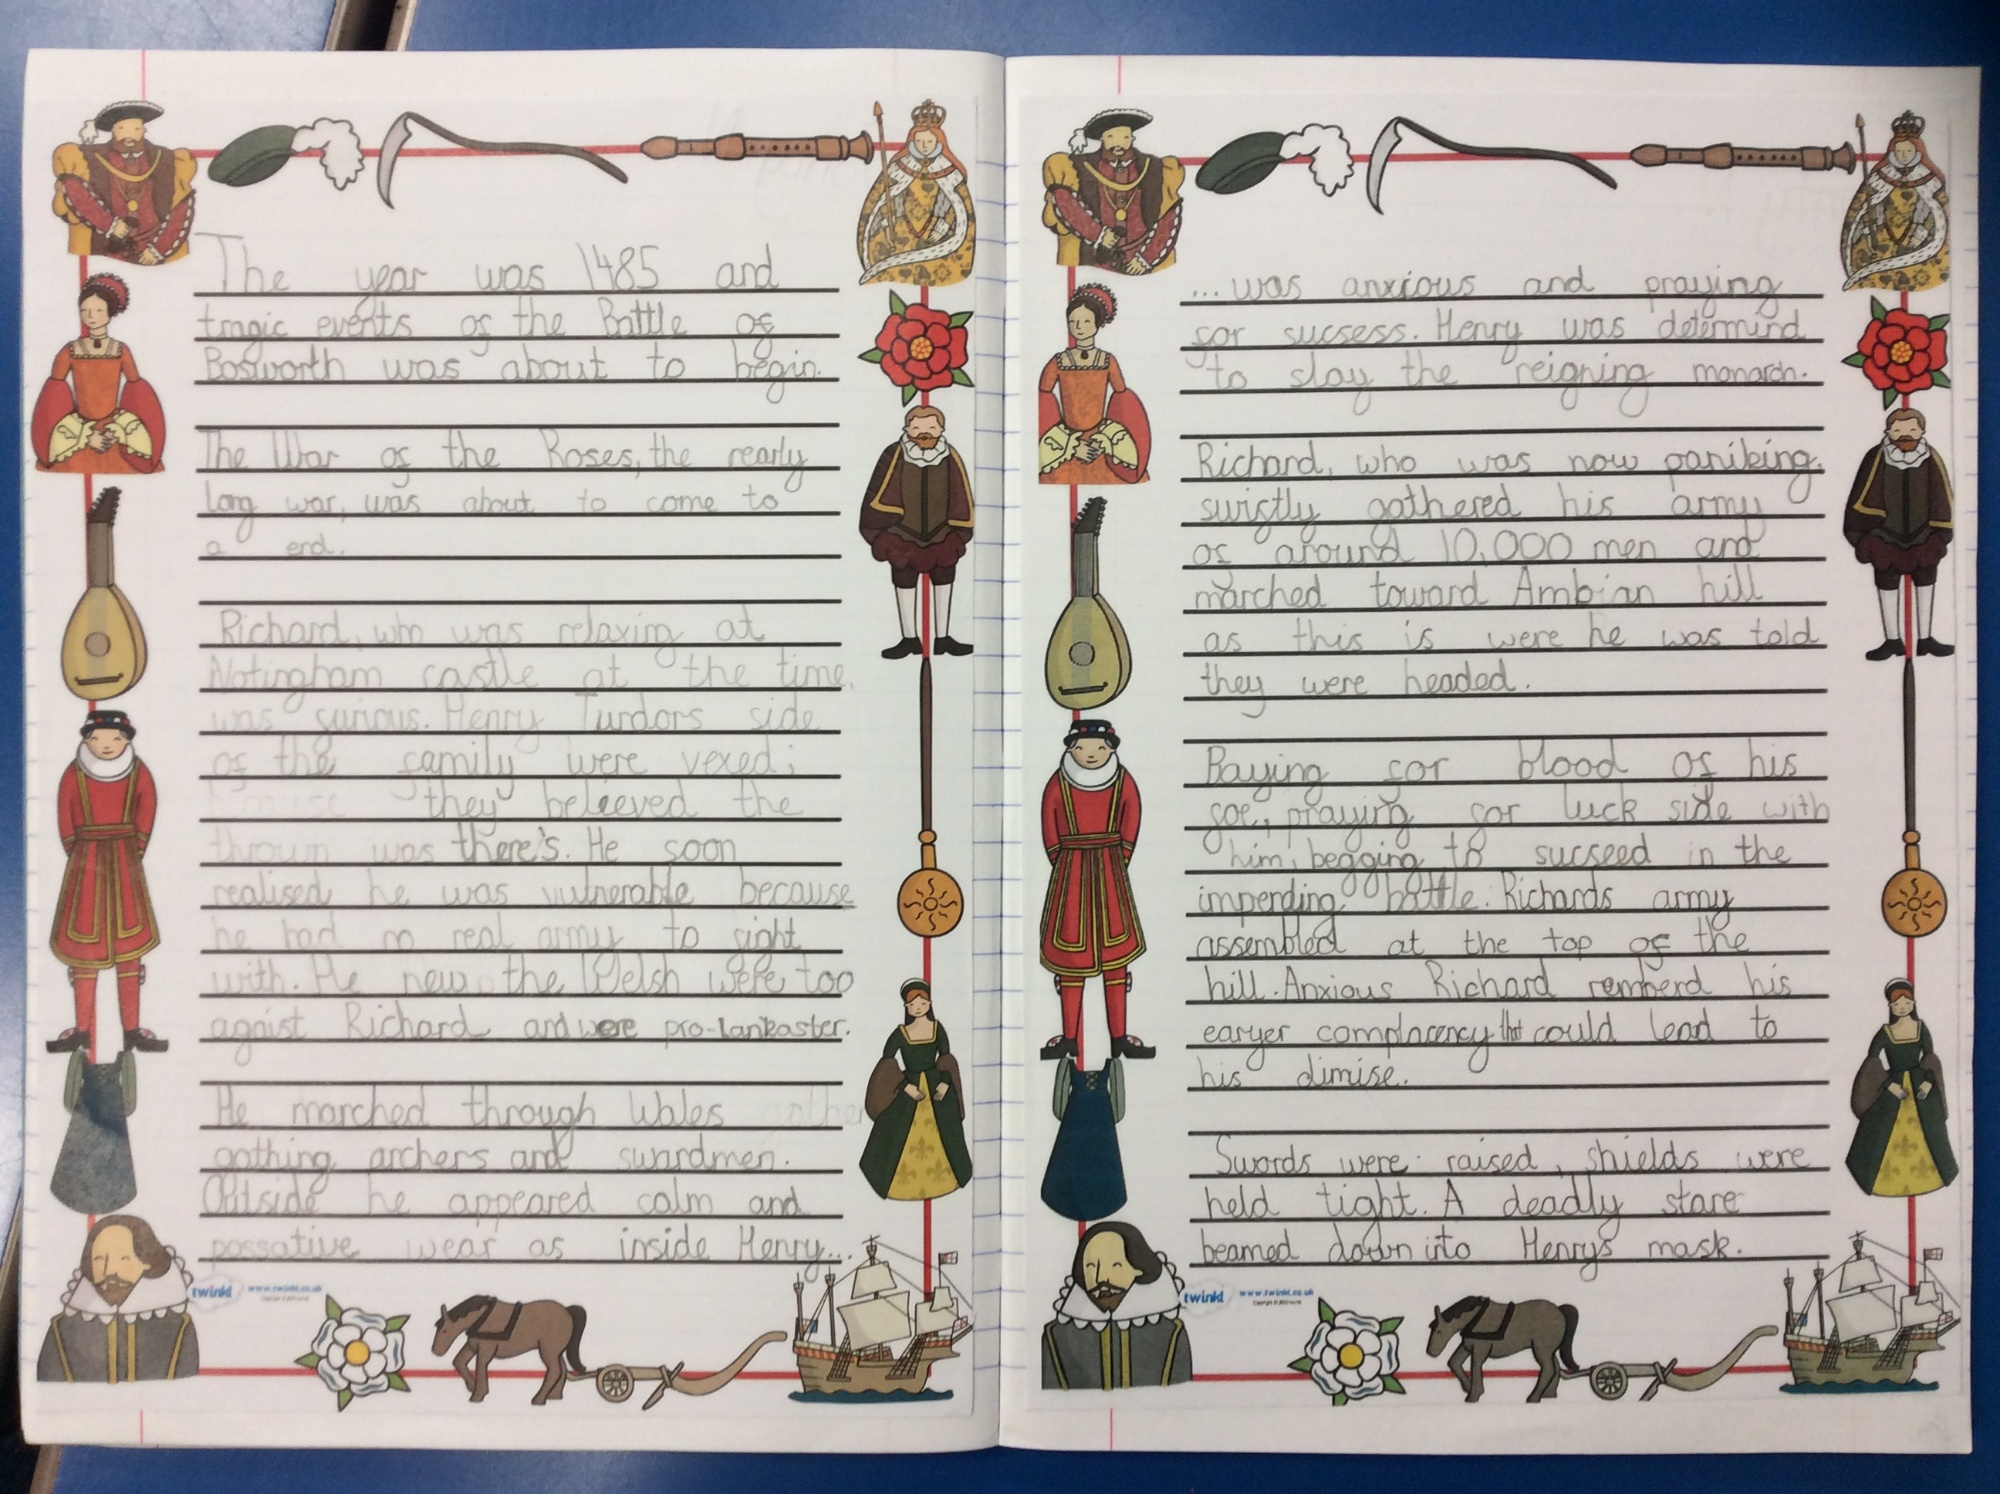 The year was 1485 and
tragic events of the Battle of
Bosworth was about to begin.
The War of the Roses, the nearly
long war, was about to come to
a end.
Richard, who was relaxing at
Notingham castle at the time,
was furious. Henry Turdors side
of the family were vexed;
because they believed the
throun was there's. He soon
realised he was vulnerable because
he had no real army to fight
with. He new the Welsh were too
agaist Richard and were pro-lankaster.
He marched through Wales
gathing archers and swardmen.
Outside he appeared calm and
possative wear as inside Henry...
twinkl www.twinkl.co.uk
...was anxious and praying
for sucsess. Henry was determind
to slay the reigning monarch.
Richard, who was now paniking,
swiftly gathered his army
of around 10,000 men and
marched toward Ambian hill
as this is were he was told
they were headed.
Baying for blood of his
foe, praying for luck side with
him, begging to sucseed in the
impending battle. Richards army
assembled at the top of the
hill. Anxious Richard remberd his
earyer complacency that could lead to
his dimise.
Swords were raised, shields were
held tight. A deadly stare
beamed down into Henry's mask.
twinkl www.twinkl.co.uk